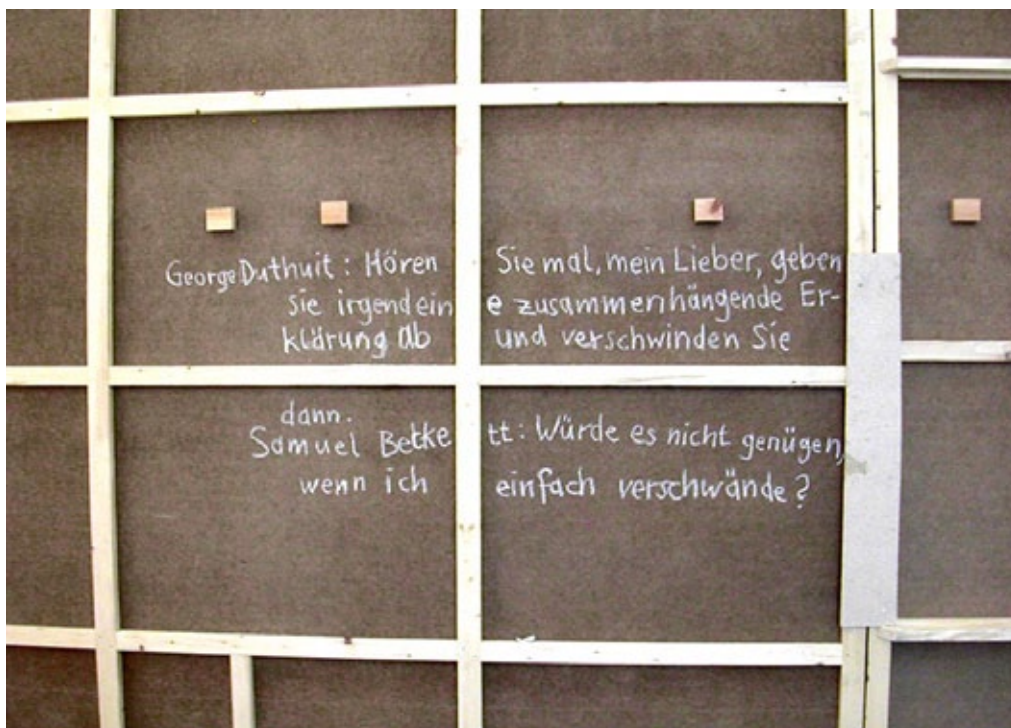 George Duthuit: Hören Sie mal, mein Lieber, geben
sie irgendeine zusammenhängende Er-
klärung ab und verschwinden Sie
dann.
Samuel Beckett: Würde es nicht genügen,
wenn ich einfach verschwände?